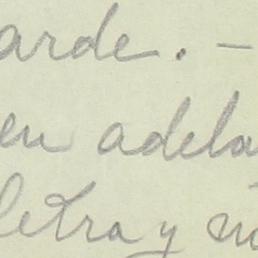 arde. —
en adela
letra y no